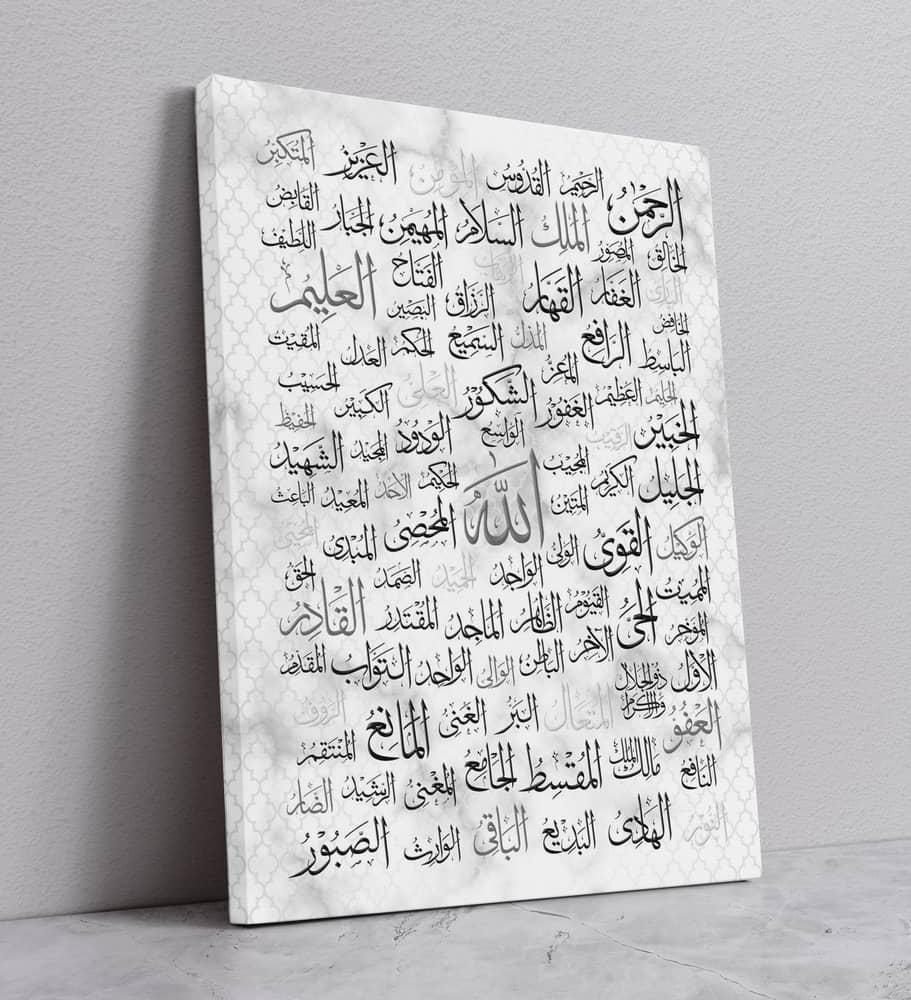 الرحمن الرحيم القدوس المؤمن العزيز المتكبر
الملك السلام المهيمن الجبار القابض
الخالق المصور الوهاب الفتاح اللطيف
البارئ الغفار القهار الرزاق البصير العليم
الخافض الرافع المذل السميع الحكم المقيت
الباسط المعز العدل
الحليم العظيم الغفور الشكور العلي الكبير الحسيب
الخبير الرقيب الواسع الودود المجيد الحفيظ
الجليل الكريم المجيب الله الحكيم الاحد الشهيد
المتين المعيد الباعث
الوكيل القوى الولى المحصى المبدئ المحيى
المميت الواجد الحميد الصمد الحق
المؤخر الحى القيوم الظاهر الماجد المقتدر القادر
الأول الآخر الباطن الوالى الواحد التواب المقدم
العفو ذو الجلال والاكرام المتعال البر الغنى المانع الرؤوف
النافع مالك الملك المقسط الجامع المنتقم
المغنى الرشيد الضار
النور الهادى البديع الباقى الوارث الصبور